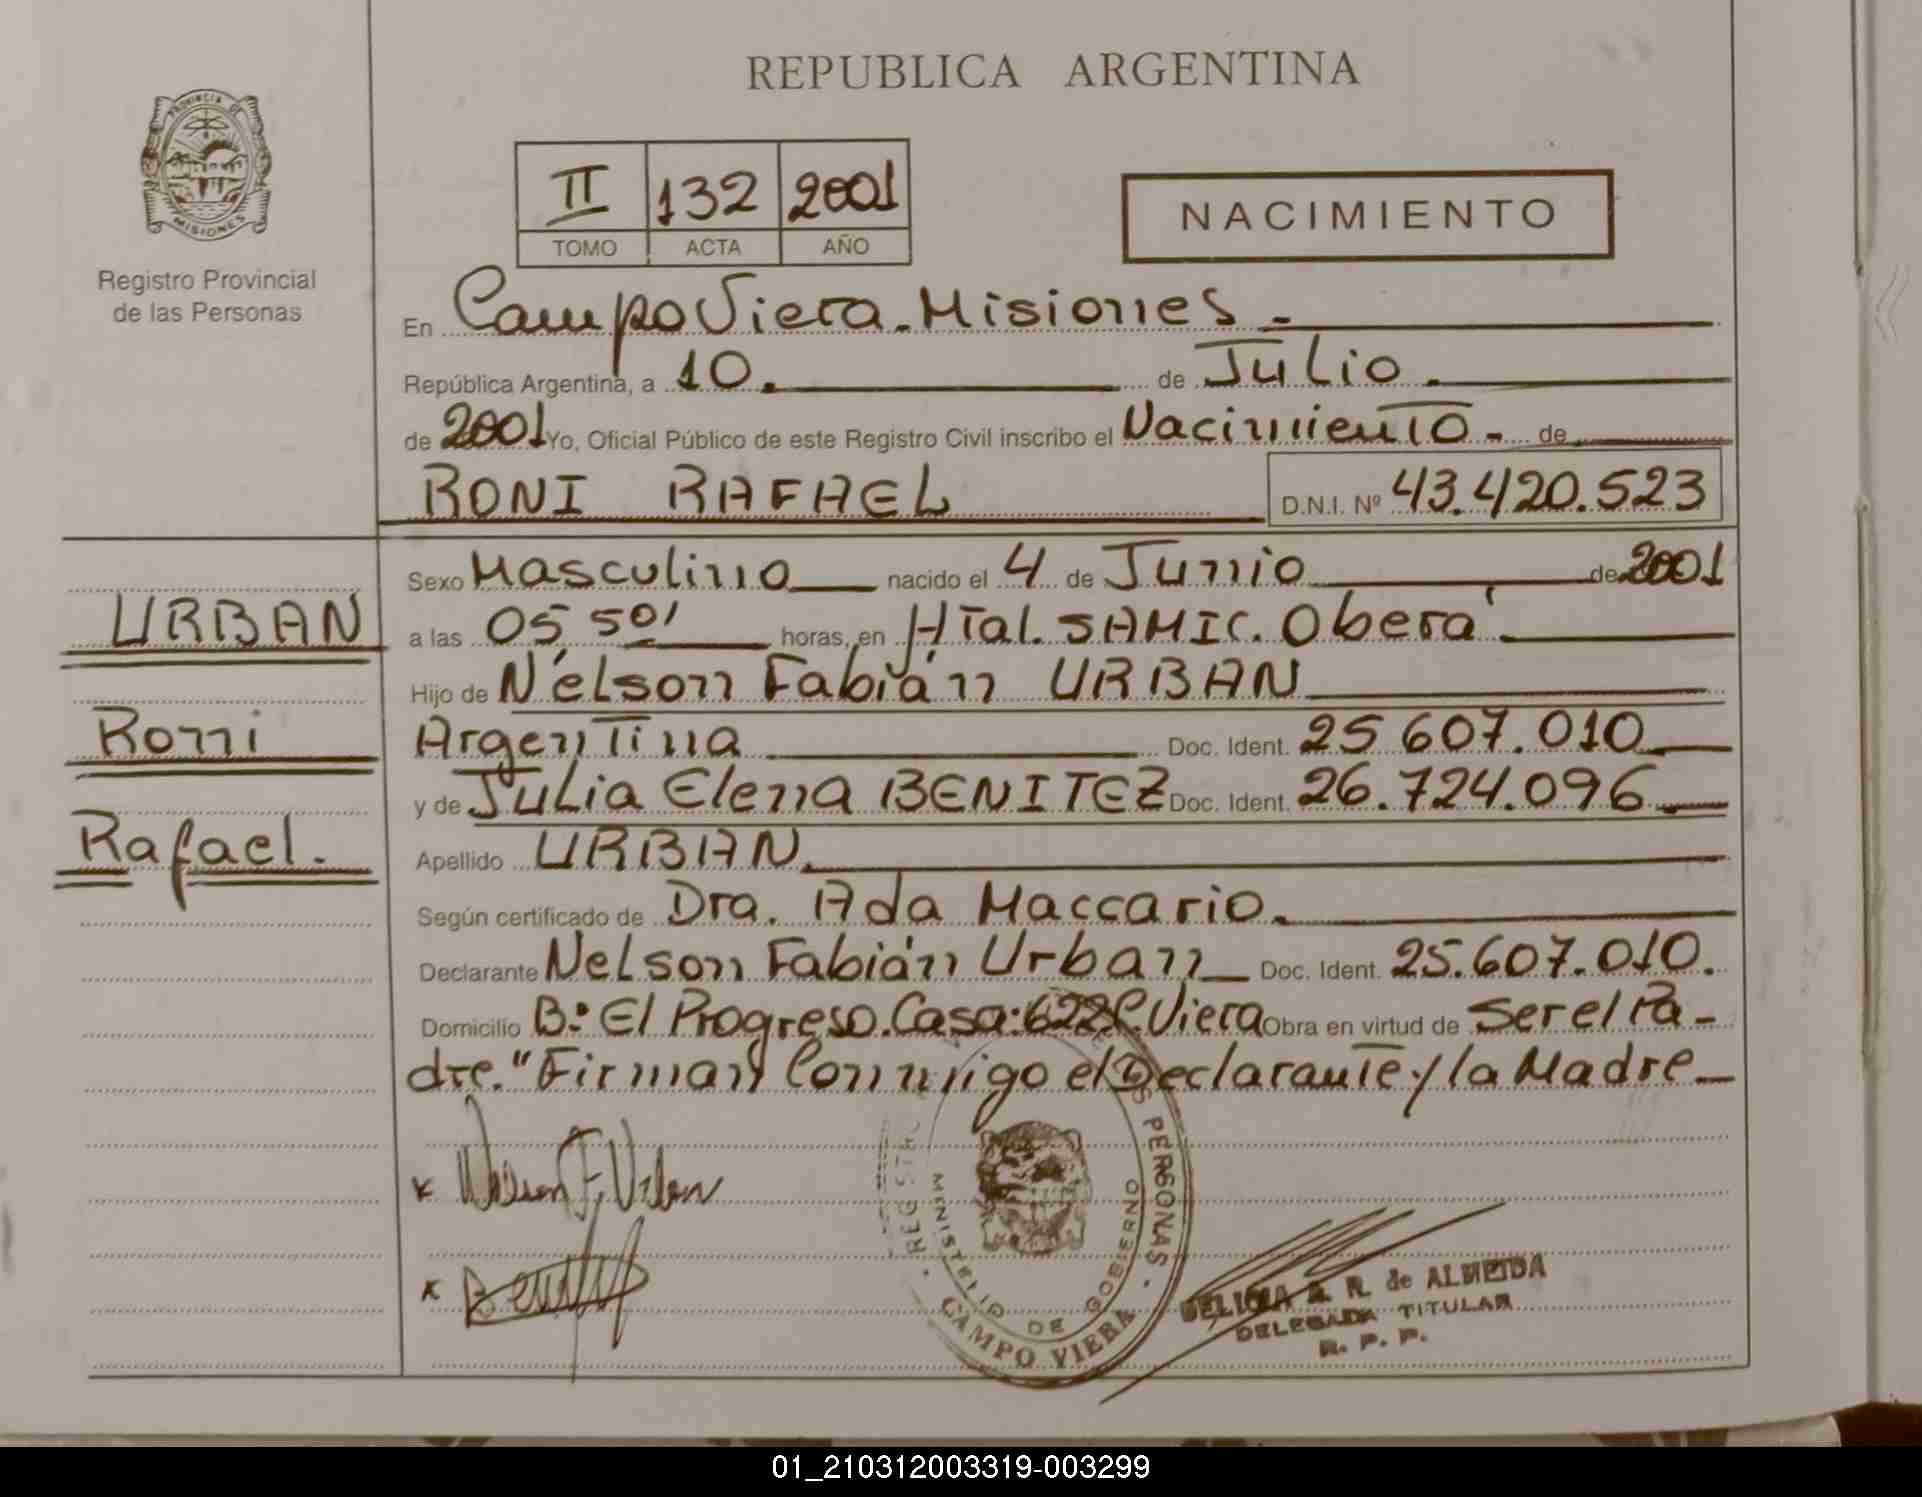 REPUBLICA ARGENTINA
PROVINCIA DE
MISIONES
Registro Provincial
de las Personas
II 132 2001
TOMO ACTA AÑO
NACIMIENTO
En Campo Viera. Misiones.
República Argentina, a 10. de Julio.
de 2001 Yo, Oficial Público de este Registro Civil inscribo el Nacimiento. de
RONI RAFAEL D.N.I. Nº 43.420.523
URBAN
Roni
Rafael.
Sexo Masculino nacido el 4 de Junio de 2001
a las 05 50' horas, en Htal. SAMIC. Oberá.
Hijo de Nélson Fabián URBAN
Argentina Doc. Ident. 25.607.010
y de Julia Elena BENITEZ Doc. Ident. 26.724.096
Apellido URBAN.
Según certificado de Dra. Ada Maccario.
Declarante Nelson Fabián Urban Doc. Ident. 25.607.010.
Domicilio B:º El Progreso. Casa: 622 C. Viera Obra en virtud de ser el Pa-
dre. "Firman Conmigo el Declarante y la Madre
x Nelson F. Urban
x
PERSONAS
MINISTERIO DE GOBIERNO
CAMPO VIERA
R. de ALMEIDA
DELEGADA TITULAR
R. P. P.
01_210312003319-003299